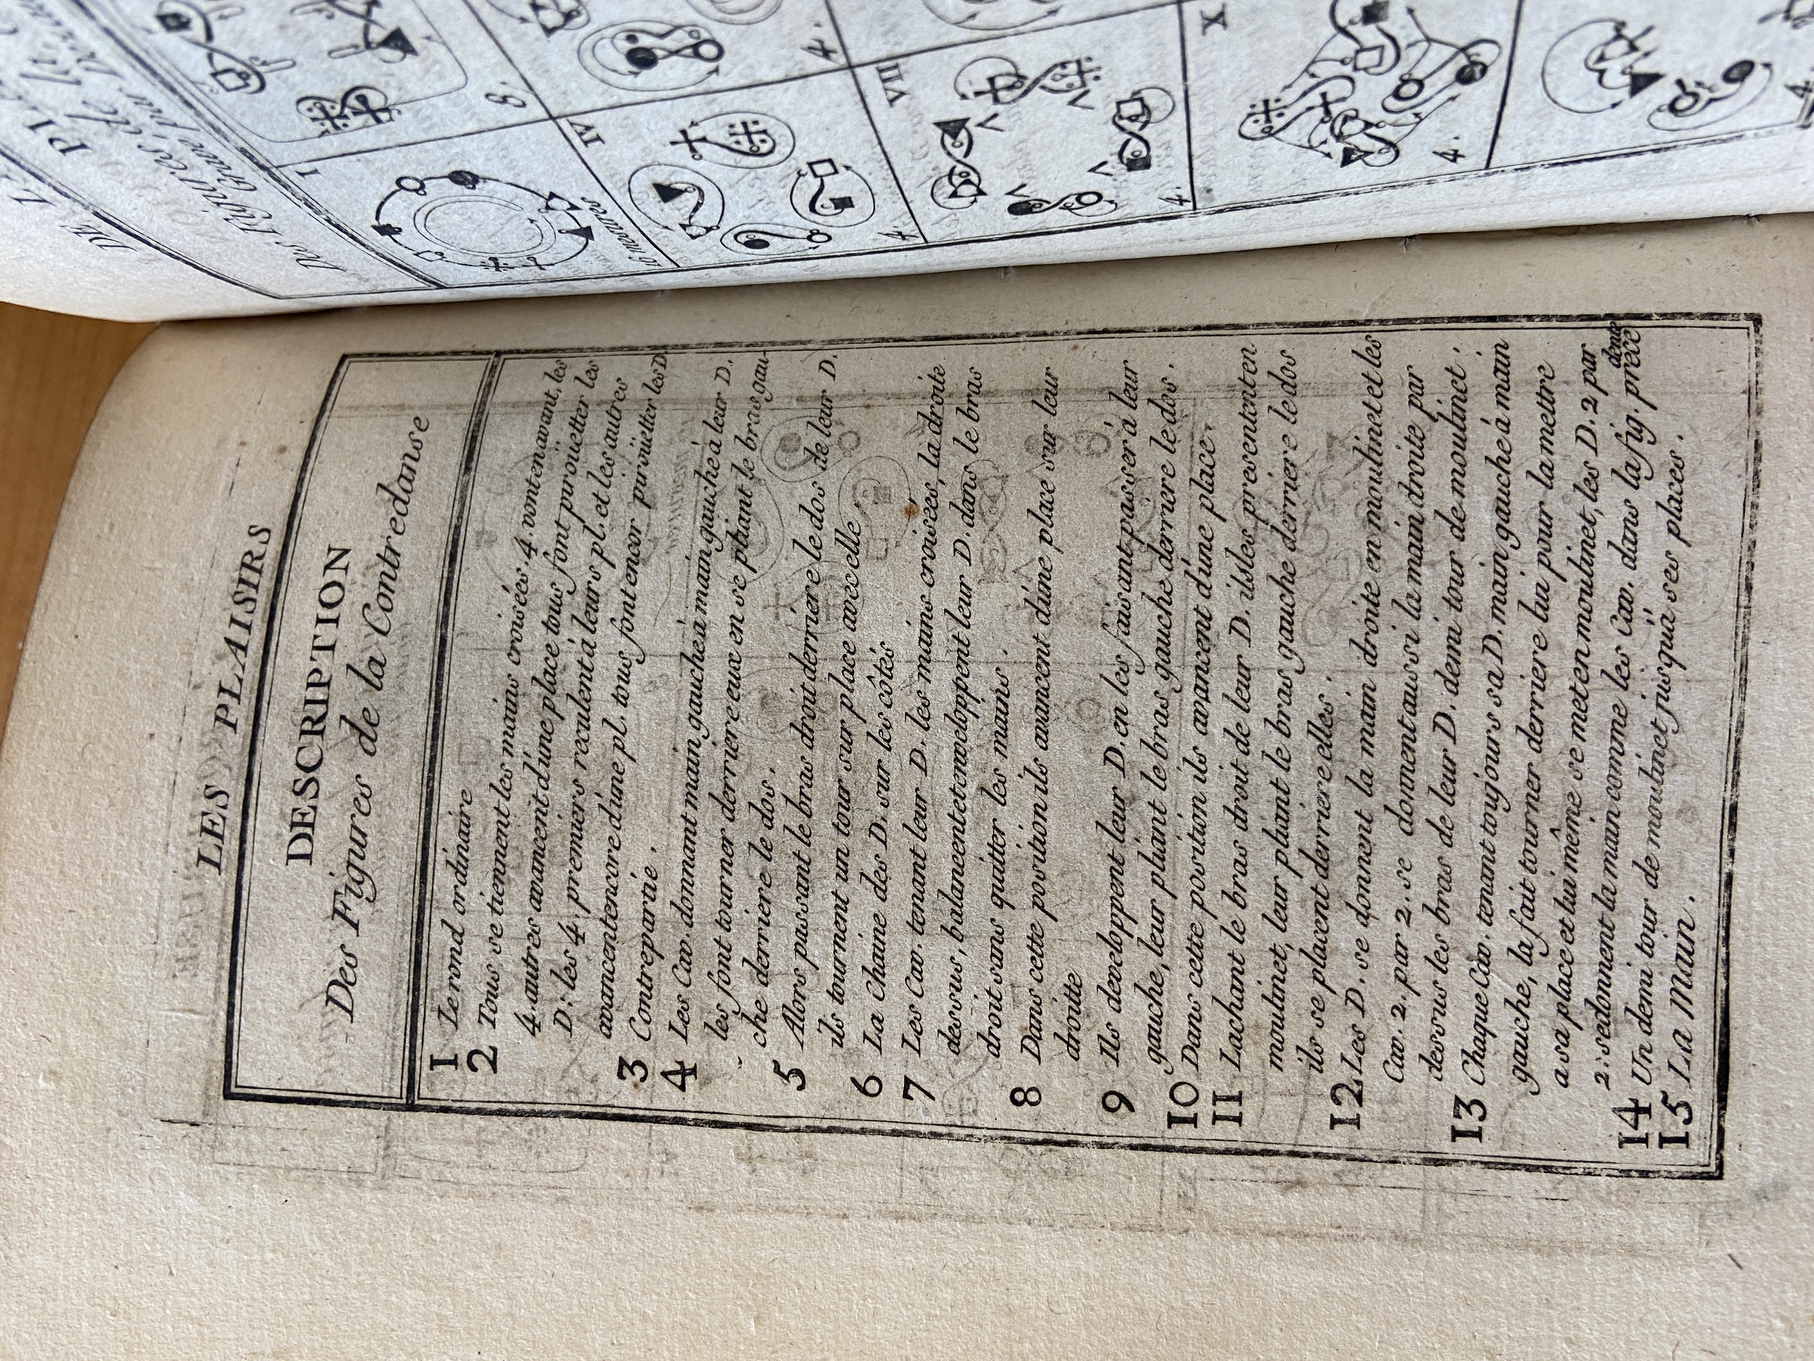 LES PLAISIRS
DESCRIPTION
Des Figures de la Contredanse
1 Le rond ordinaire
2 Tous se tiennent les mains croisées. 4. vont en avant, les
4. autres avancent d'une place tous font pirouëtter les
D: les 4. premiers reculent à leurs pl. et les autres
avancent encore d'une pl. tous font encor pirouëtter les D
3 Contrepartie.
4 Les Cav. donnant main gauche à main gauche à leur D.
les font tourner derriere eux en se pliant le bras gau-
che derriere le dos.
5 Alors passant le bras droit derriere le dos de leur D.
ils tournent un tour sur place avec elle
6 La Chaine des D. sur les côtés
7 Les Cav. tenant leur D. les mains croisées, la droite
dessus, balancent et enveloppent leur D. dans le bras
droit sans quitter les mains.
8 Dans cette position ils avancent d'une place sur leur
droite
9 Ils developpent leur D. en les faisant passer à leur
gauche, leur pliant le bras gauche derriere le dos.
10 Dans cette position ils avancent d'une place.
11 Lachant le bras droit de leur D. ils les presentent en
moulinet, leur pliant le bras gauche derriere le dos
ils se placent derriere elles.
12 Les D. se donnent la main droite en moulinet et les
Cav. 2. par 2. se donnent aussi la main droite par
dessus les bras de leur D. demi tour de moulinet.
13 Chaque Cav. tenant toujours sa D. main gauche à main
gauche, la fait tourner derriere lui pour la mettre
a sa place et lui même se met en moulinet, les D. 2 par
2. se donnent la main comme les Cav. dans la fig. préce
dente
14 Un demi tour de moulinet jusqu'à ses places.
15 La Main.
I
8.
4.
IV
4.
VIII
4.
X
4.
4.
16 mesures